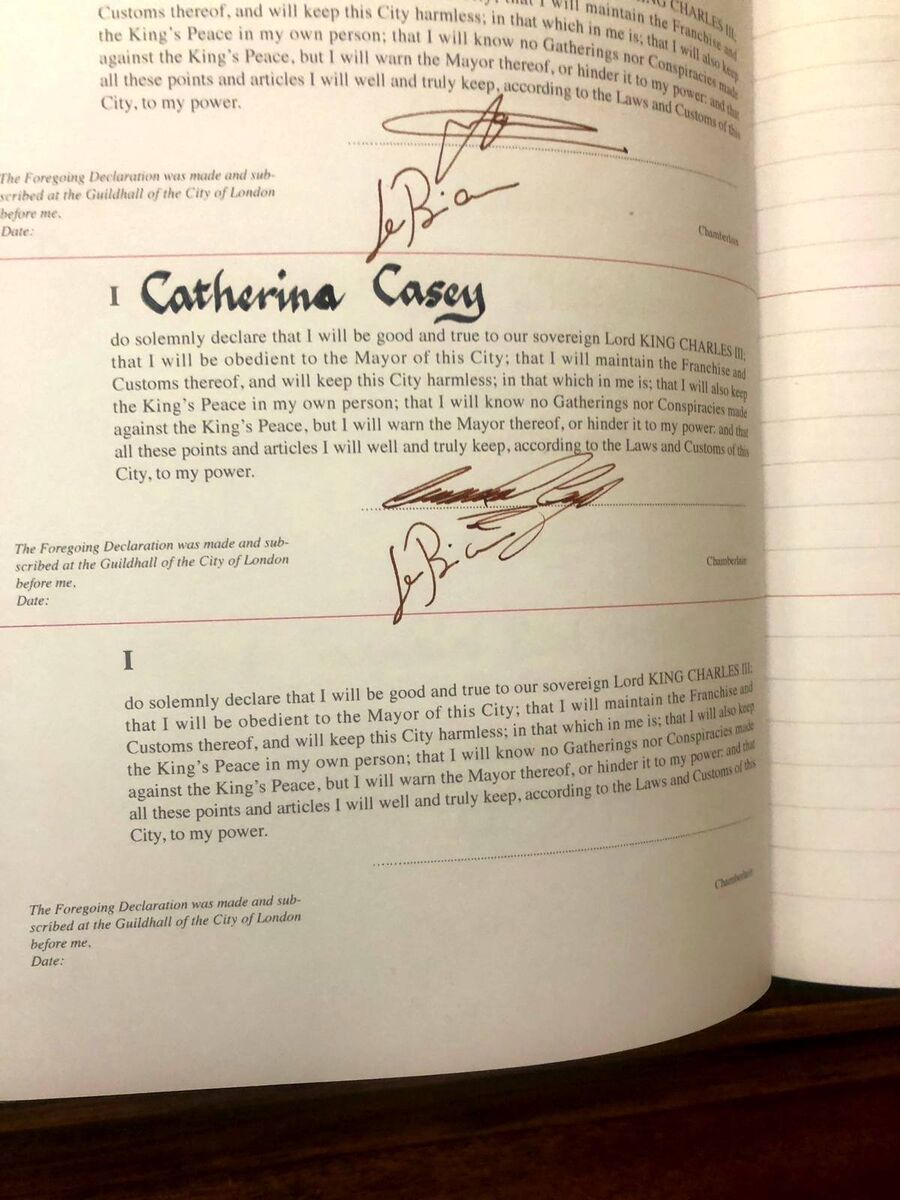 that I will maintain the Franchise and
Customs thereof, and will keep this City harmless; in that which in me is; that I will also keep
the King's Peace in my own person; that I will know no Gatherings nor Conspiracies made
against the King's Peace, but I will warn the Mayor thereof, or hinder it to my power: and that
all these points and articles I will well and truly keep, according to the Laws and Customs of this
City, to my power.
The Foregoing Declaration was made and sub-
scribed at the Guildhall of the City of London
before me,
Date:
Chamberlain
I Catherina Casey
do solemnly declare that I will be good and true to our sovereign Lord KING CHARLES III;
that I will be obedient to the Mayor of this City; that I will maintain the Franchise and
Customs thereof, and will keep this City harmless; in that which in me is; that I will also keep
the King's Peace in my own person; that I will know no Gatherings nor Conspiracies made
against the King's Peace, but I will warn the Mayor thereof, or hinder it to my power: and that
all these points and articles I will well and truly keep, according to the Laws and Customs of this
City, to my power.
The Foregoing Declaration was made and sub-
scribed at the Guildhall of the City of London
before me,
Date:
Chamberlain
I
do solemnly declare that I will be good and true to our sovereign Lord KING CHARLES III;
that I will be obedient to the Mayor of this City; that I will maintain the Franchise and
Customs thereof, and will keep this City harmless; in that which in me is; that I will also keep
the King's Peace in my own person; that I will know no Gatherings nor Conspiracies made
against the King's Peace, but I will warn the Mayor thereof, or hinder it to my power: and that
all these points and articles I will well and truly keep, according to the Laws and Customs of this
City, to my power.
Chamberlain
The Foregoing Declaration was made and sub-
scribed at the Guildhall of the City of London
before me,
Date: